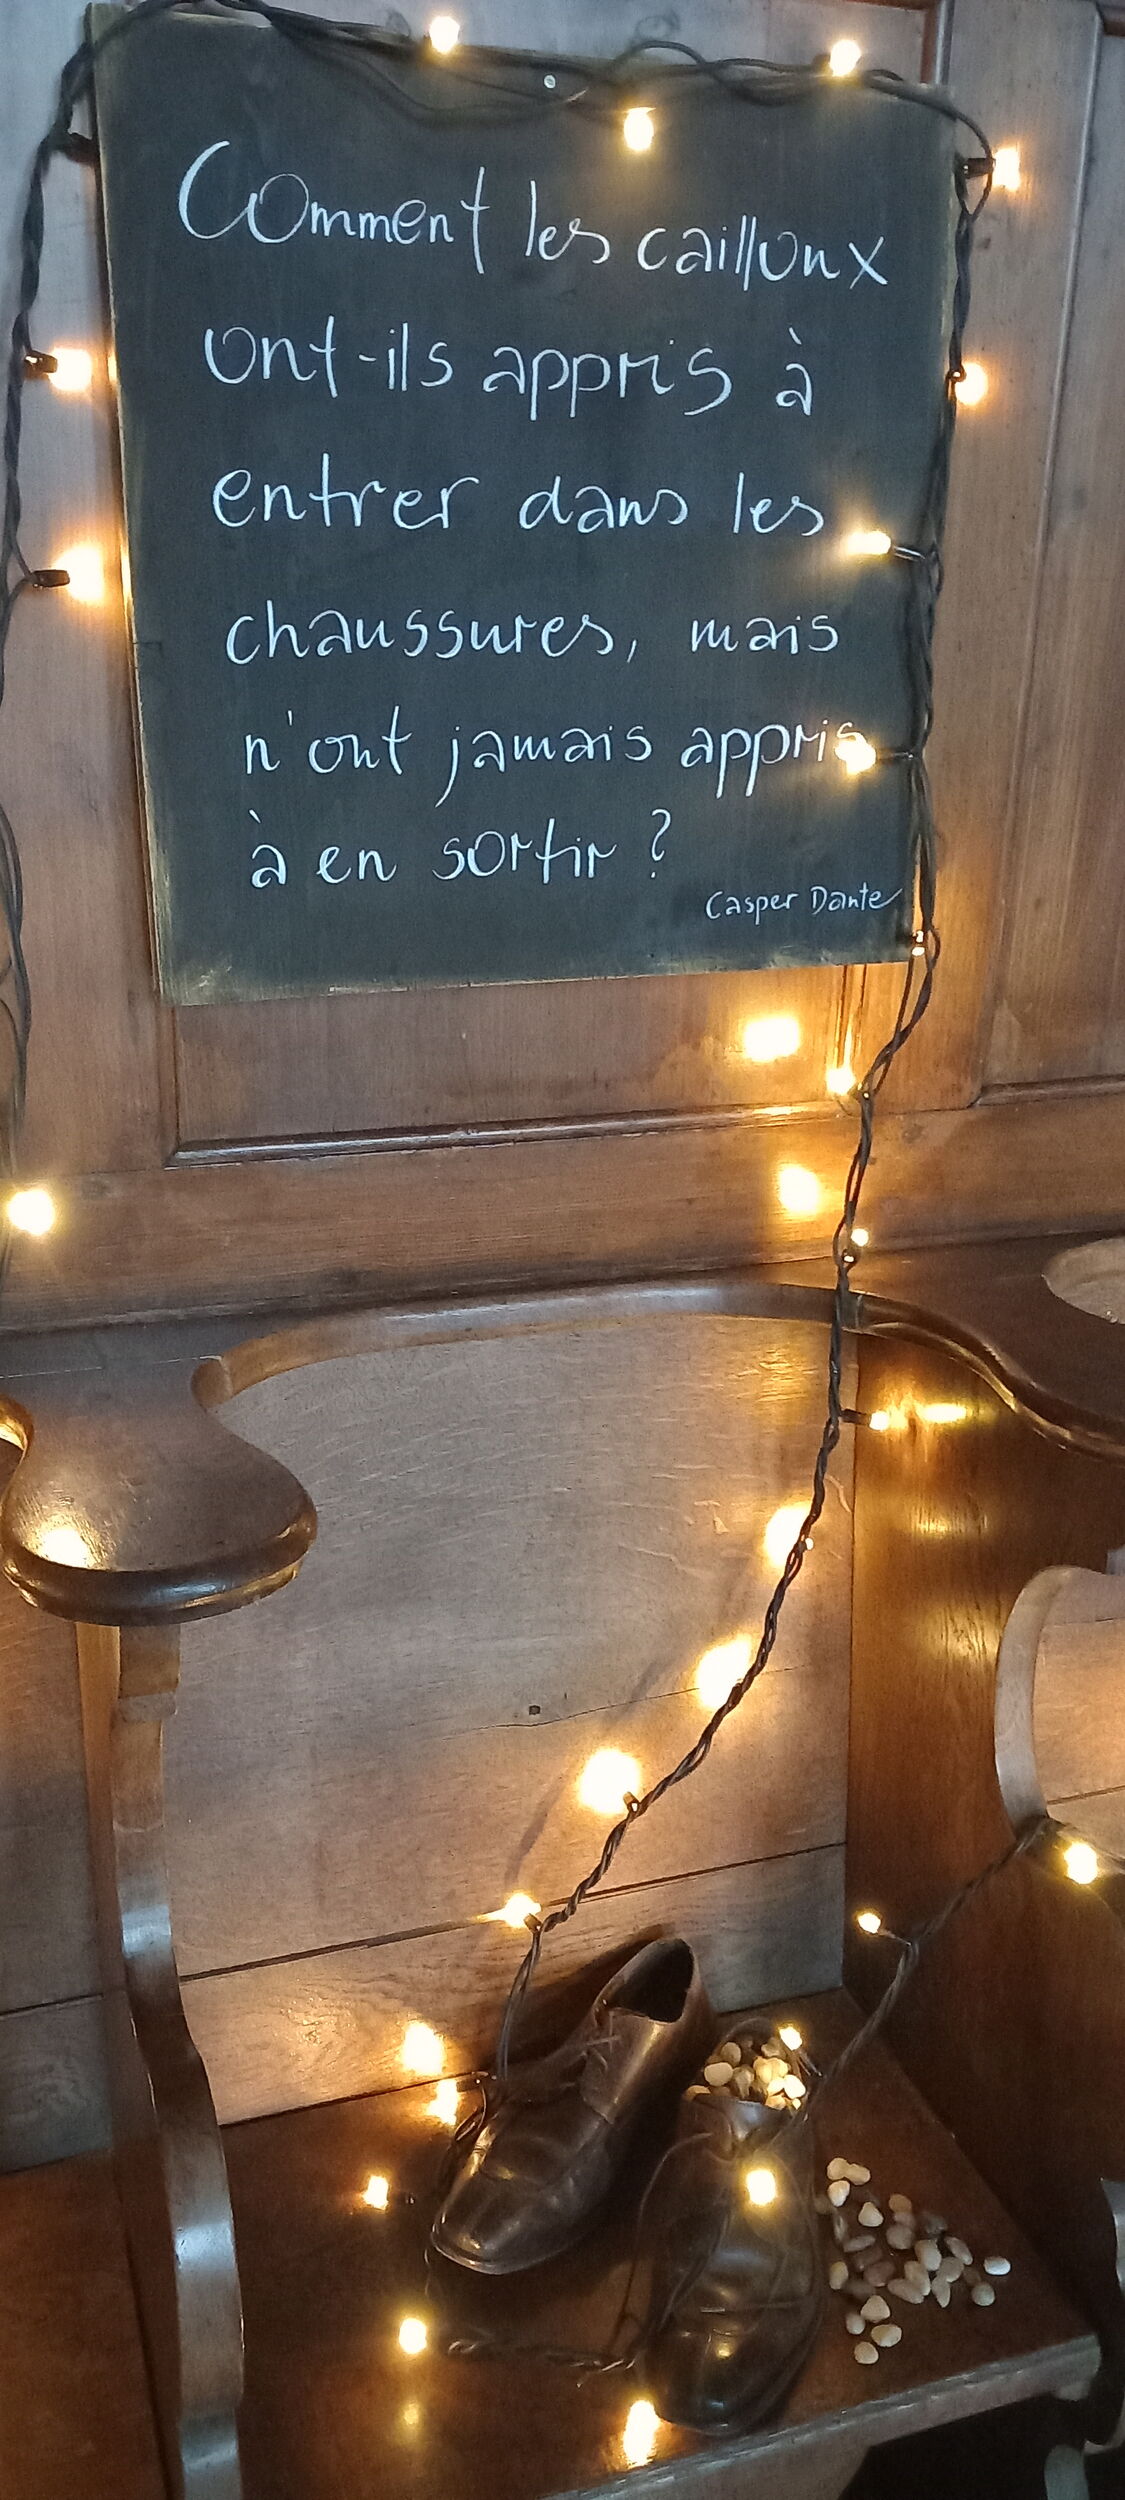 Comment les cailloux
ont-ils appris à
entrer dans les
chaussures, mais
n'ont jamais appris
à en sortir ?
Casper Dante